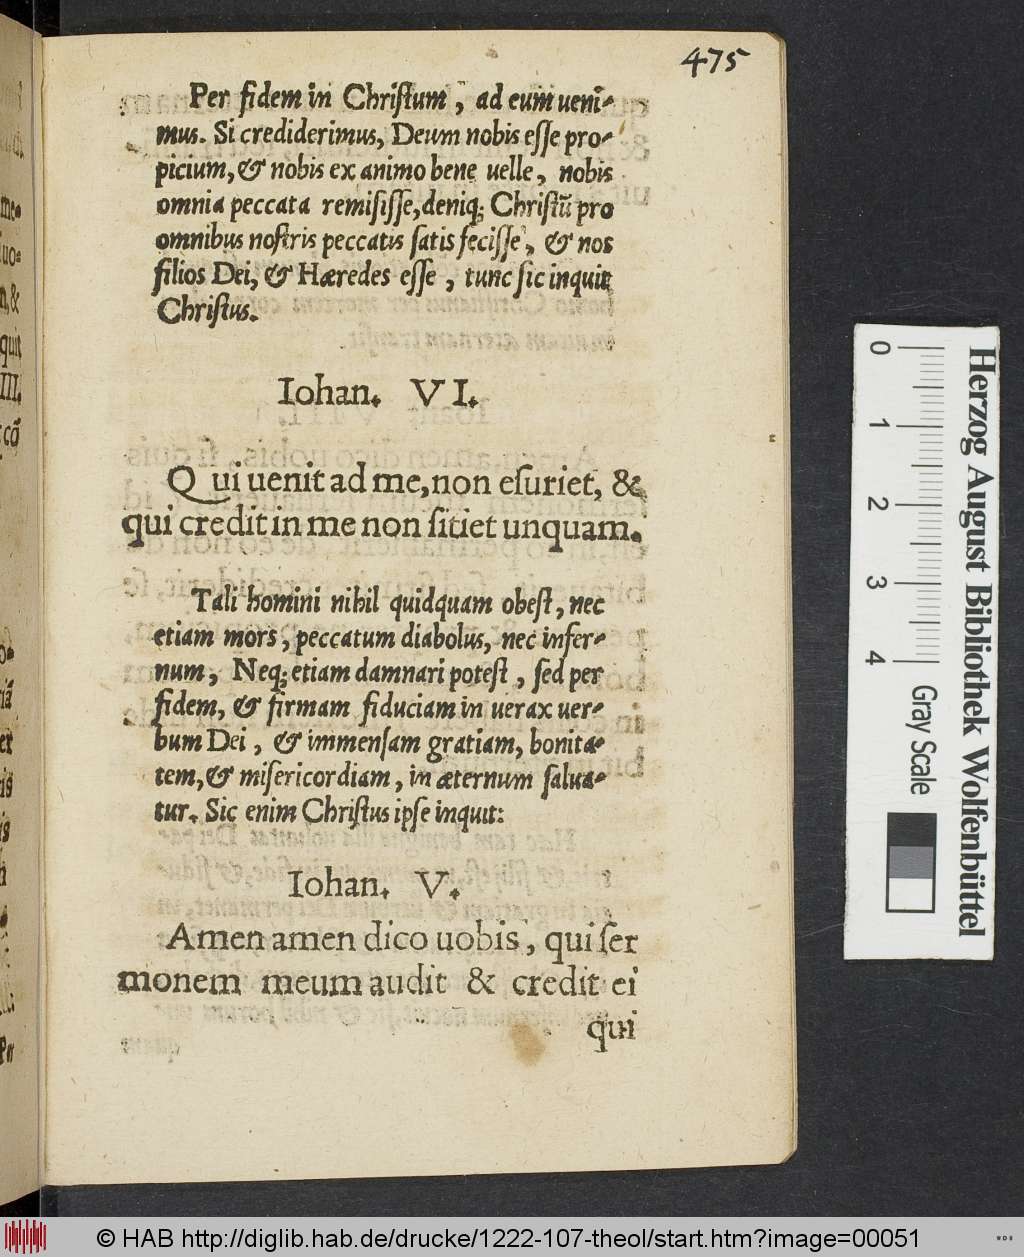 475
Per fidem in Christum, ad eum ueni-
mus. Si crediderimus, Deum nobis esse pro-
picium, & nobis ex animo bene uelle, nobis
omnia peccata remisisse, deniq; Christũ pro
omnibus nostris peccatis satis fecisse, & nos
filios Dei, & Hæredes esse, tunc sic inquit
Christus.
Iohan. VI.
Qui uenit ad me, non esuriet, &
qui credit in me non sitiet unquam.
Tali homini nihil quidquam obest, nec
etiam mors, peccatum diabolus, nec infer-
num, Neq; etiam damnari potest, sed per
fidem, & firmam fiduciam in uerax uer-
bum Dei, & immensam gratiam, bonita-
tem, & misericordiam, in æternum salua-
tur. Sic enim Christus ipse inquit:
Iohan. V.
Amen amen dico uobis, qui ser
monem meum audit & credit ei
qui
0 1 2 3 4
Gray Scale
Herzog August Bibliothek Wolfenbüttel
© HAB http://diglib.hab.de/drucke/1222-107-theol/start.htm?image=00051